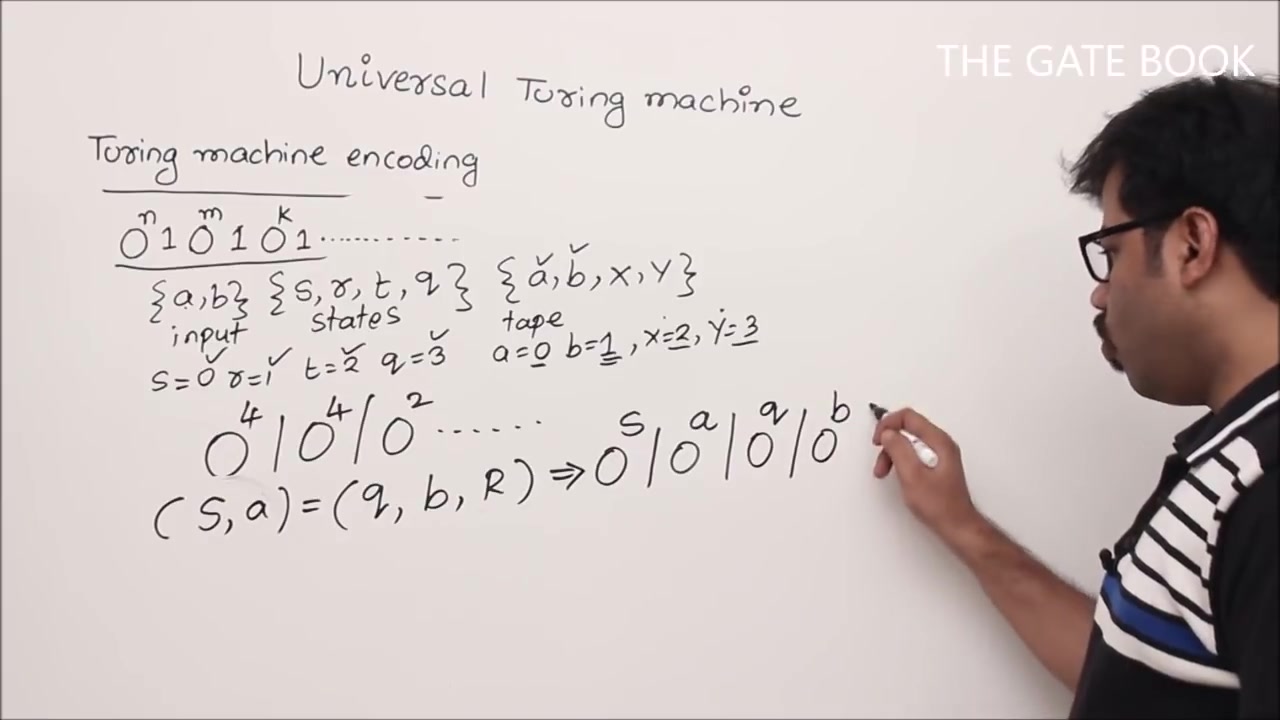 THE GATE BOOK
Universal Turing machine
Turing machine encoding
0ⁿ10ᵐ10ᵏ1..............
{a,b} {s, r, t, q} {a, b, x, y}
input states tape
s=0 r=1 t=2 q=3 a=0 b=1, x=2, y=3
0⁴|0⁴|0²......
(s,a)=(q, b, R) ⇒ 0ˢ|0ᵃ|0^q|0ᵇ